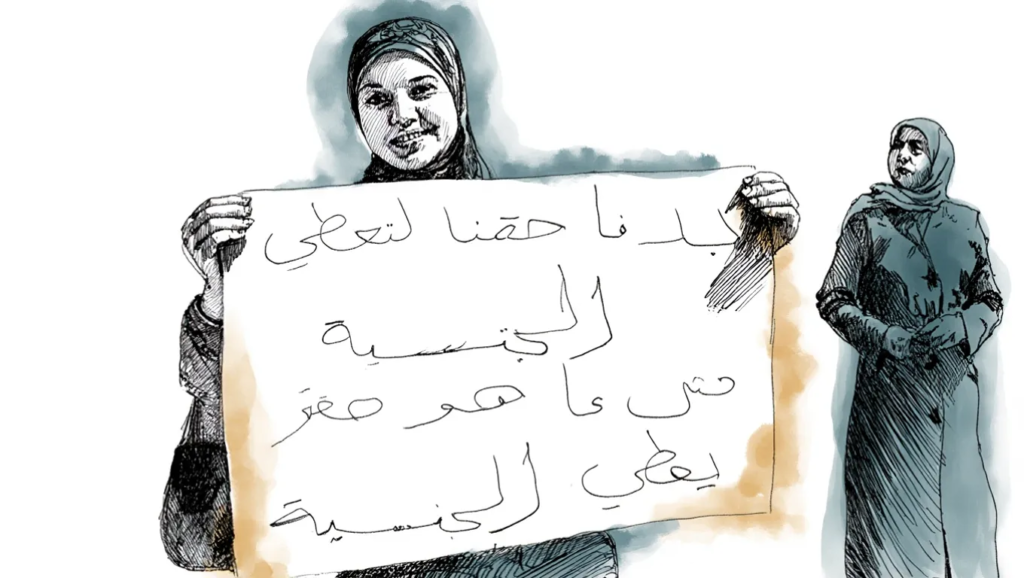 بدنا حقنا لتعطي
الجنسية
متل ما هو حقو
يعطي الجنسية